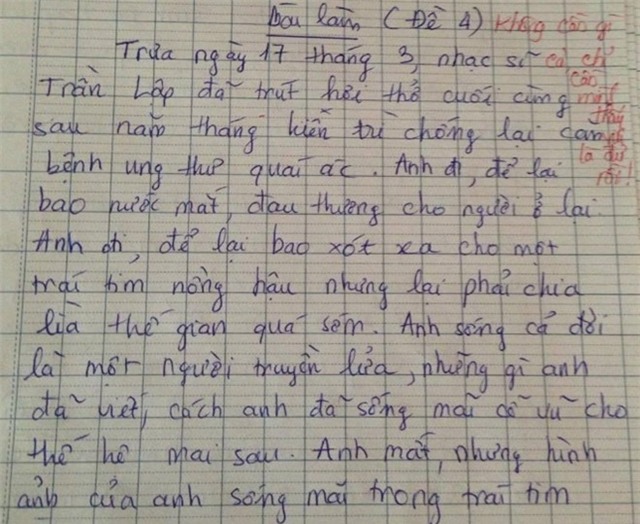 Bài làm (Đề 4) Không cần gì
Trưa ngày 17 tháng 3, nhạc sĩ cả chỉ
Trần Lập đã trút hơi thở cuối cùng cần một
sau năm tháng kiên trì chống lại căn thầy
bệnh ung thư quái ác. Anh đi, để lại là đủ
bao nước mắt, đau thương cho người ở lại. rồi!
Anh đi, để lại bao xót xa cho một
trái tim nồng hậu nhưng lại phải chia
lìa thế gian quá sớm. Anh sống cả đời
là một người truyền lửa, những gì anh
đã viết, cách anh đã sống mãi cổ vũ cho
thế hệ mai sau. Anh mất, nhưng hình
ảnh của anh sống mãi trong trái tim